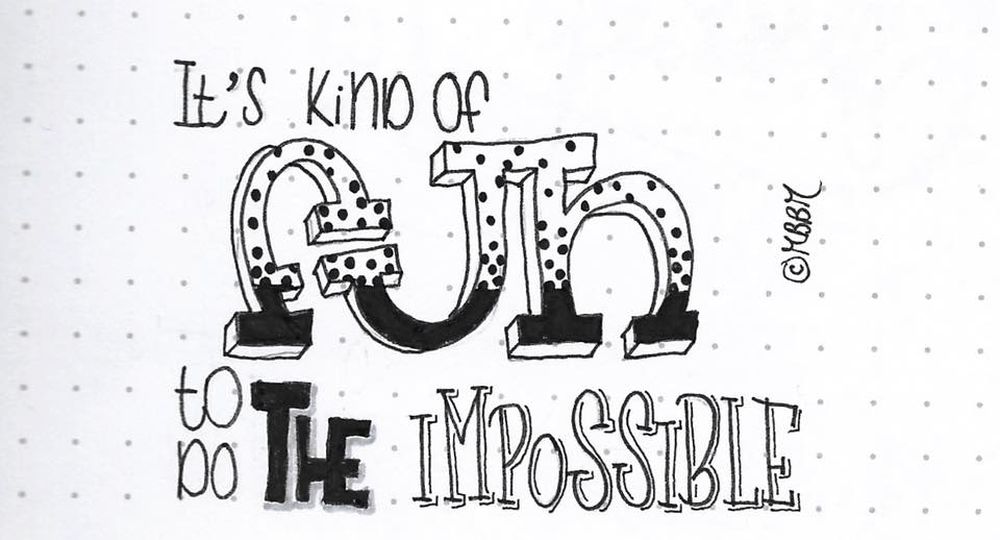 It's kind of
fun
to do THE IMPOSSIBLE
©MBBM